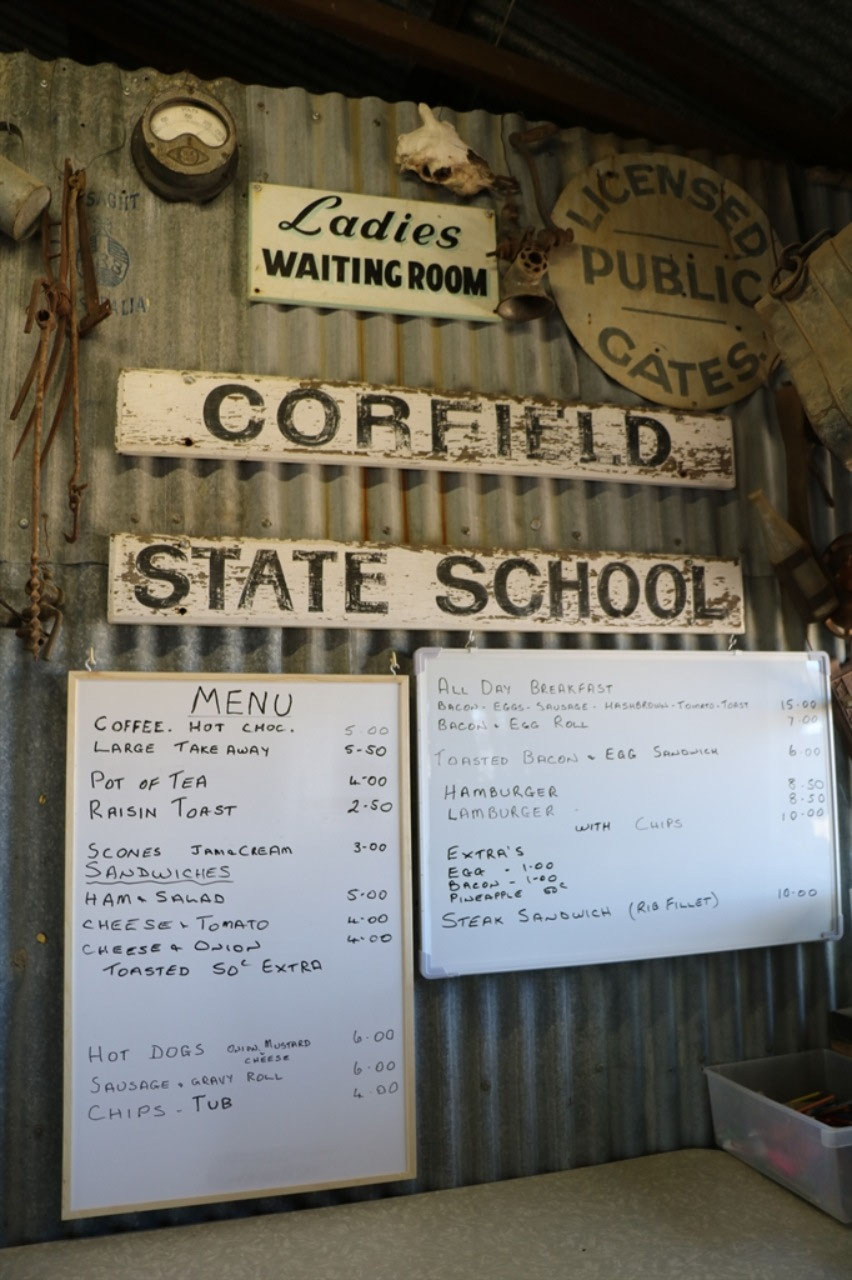 Ladies
WAITING ROOM
LICENSED
PUBLIC
GATES.
CORFIELD
STATE SCHOOL
MENU
COFFEE. HOT CHOC. 5.00
LARGE TAKE AWAY 5-50
POT OF TEA 4-00
RAISIN TOAST 2-50
SCONES JAM & CREAM 3-00
SANDWICHES
HAM & SALAD 5-00
CHEESE & TOMATO 4-00
CHEESE & ONION 4-00
TOASTED 50c EXTRA
HOT DOGS ONION MUSTARD 6-00
CHEESE
SAUSAGE & GRAVY ROLL 6.00
CHIPS - TUB 4.00
ALL DAY BREAKFAST
BACON - EGGS - SAUSAGE - HASHBROWN - TOMATO - TOAST 15-00
BACON & EGG ROLL 7.00
TOASTED BACON & EGG SANDWICH 6.00
HAMBURGER 8.50
LAMBURGER 8.50
WITH CHIPS 10-00
EXTRA'S
EGG - 1-00
BACON - 1-00
PINEAPPLE 50c
STEAK SANDWICH (RIB FILLET) 10-00